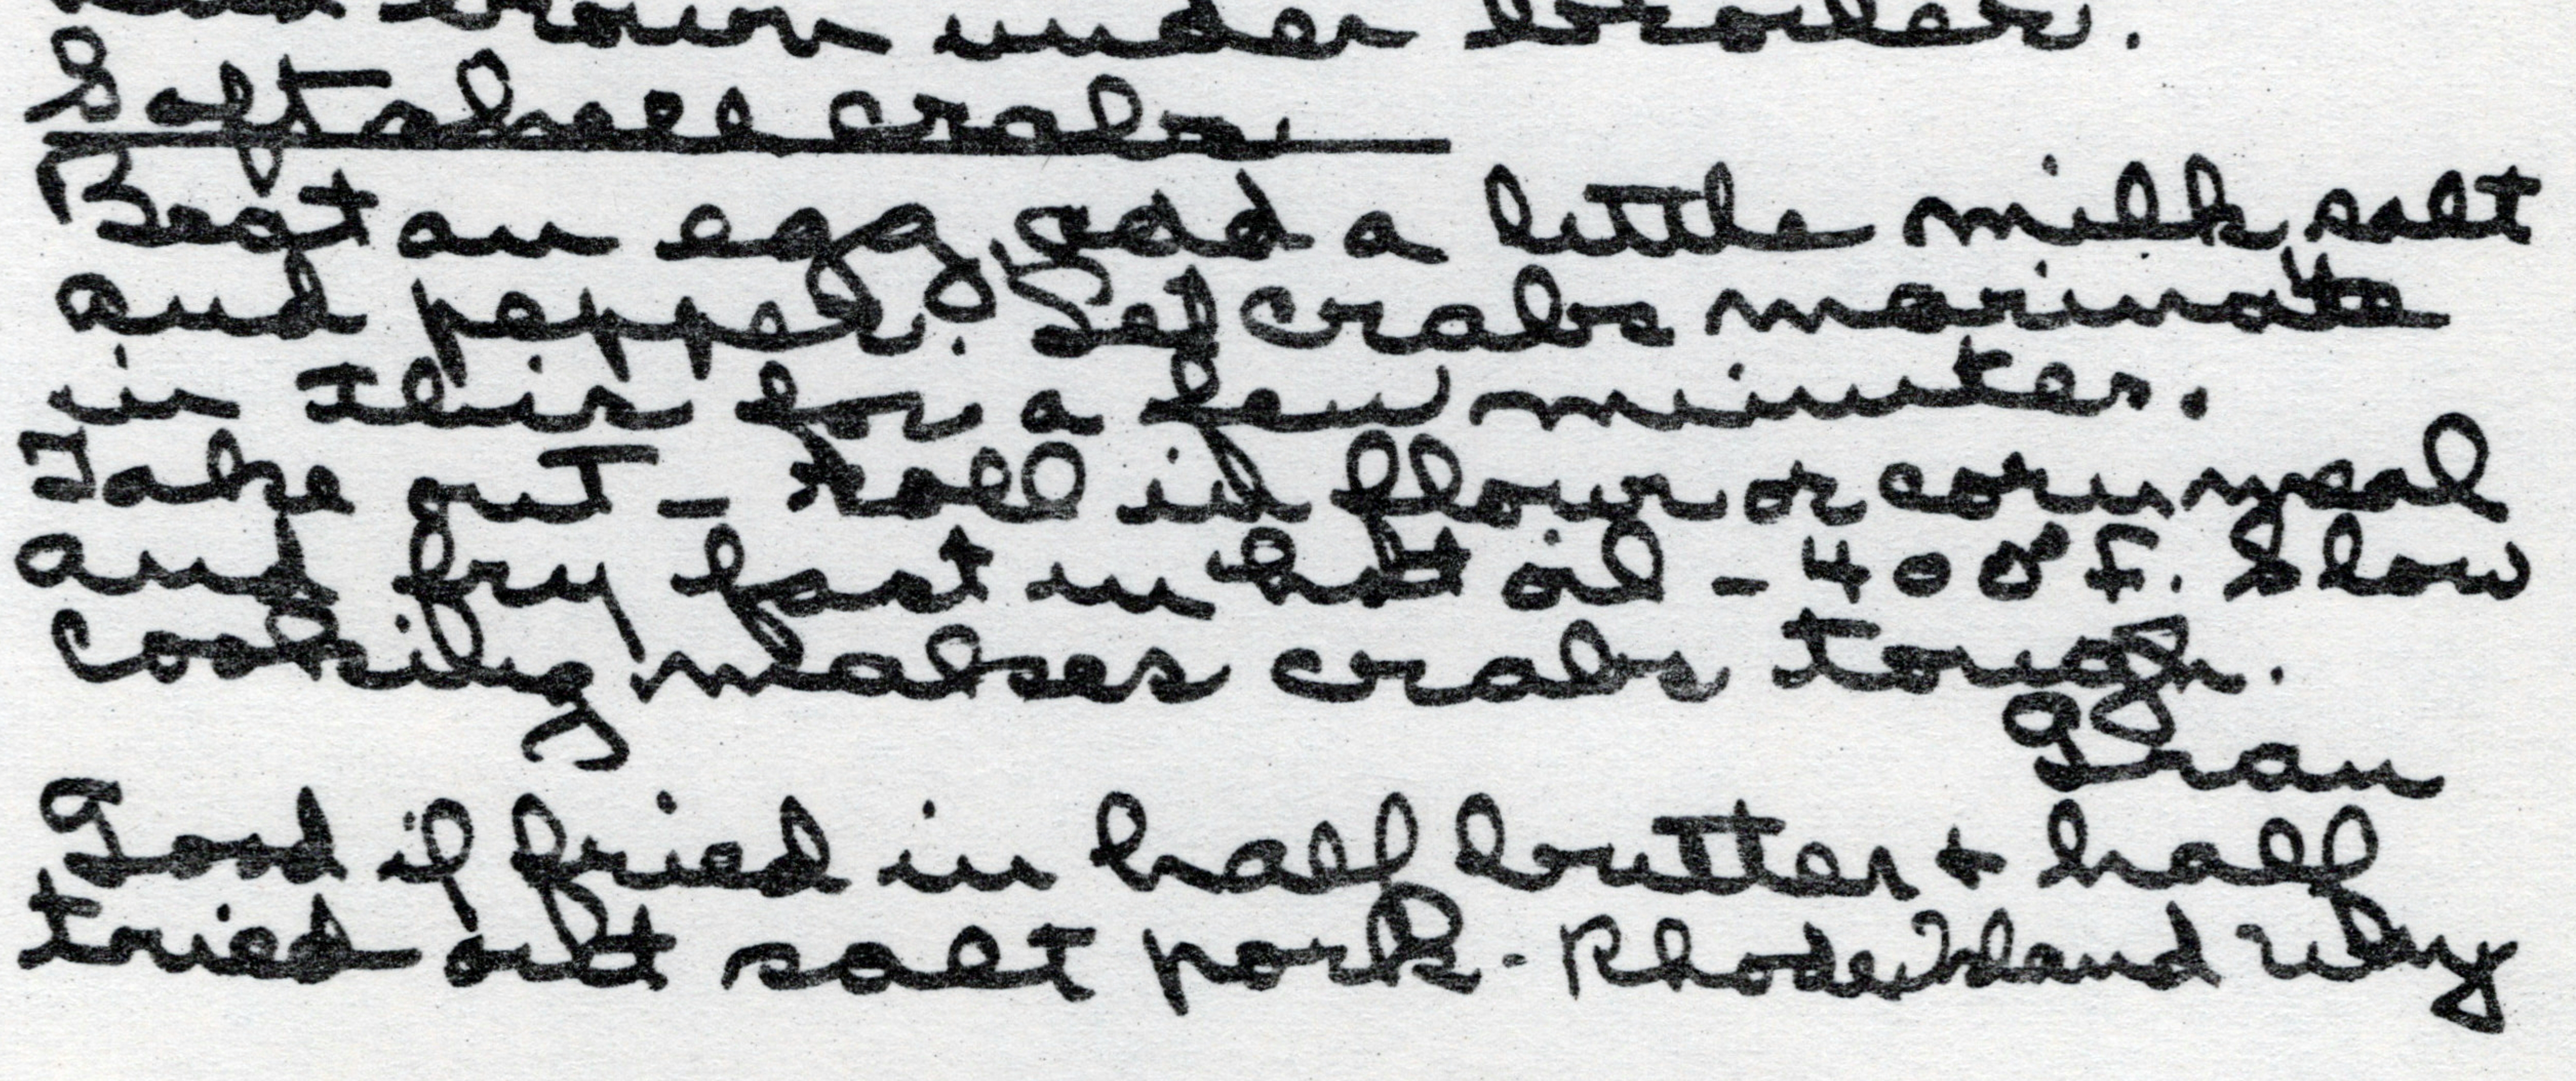 and brown under broiler.
Soft shell crabs.
Beat an egg, add a little milk, salt
and pepper. Let crabs marinate
in this for a few minutes.
Take out – roll in flour or corn meal
and fry fast in hot oil – 400°F. Slow
cooking makes crabs tough.
Gran
Good if fried in half butter + half
tried out salt pork - Rhode Island Way